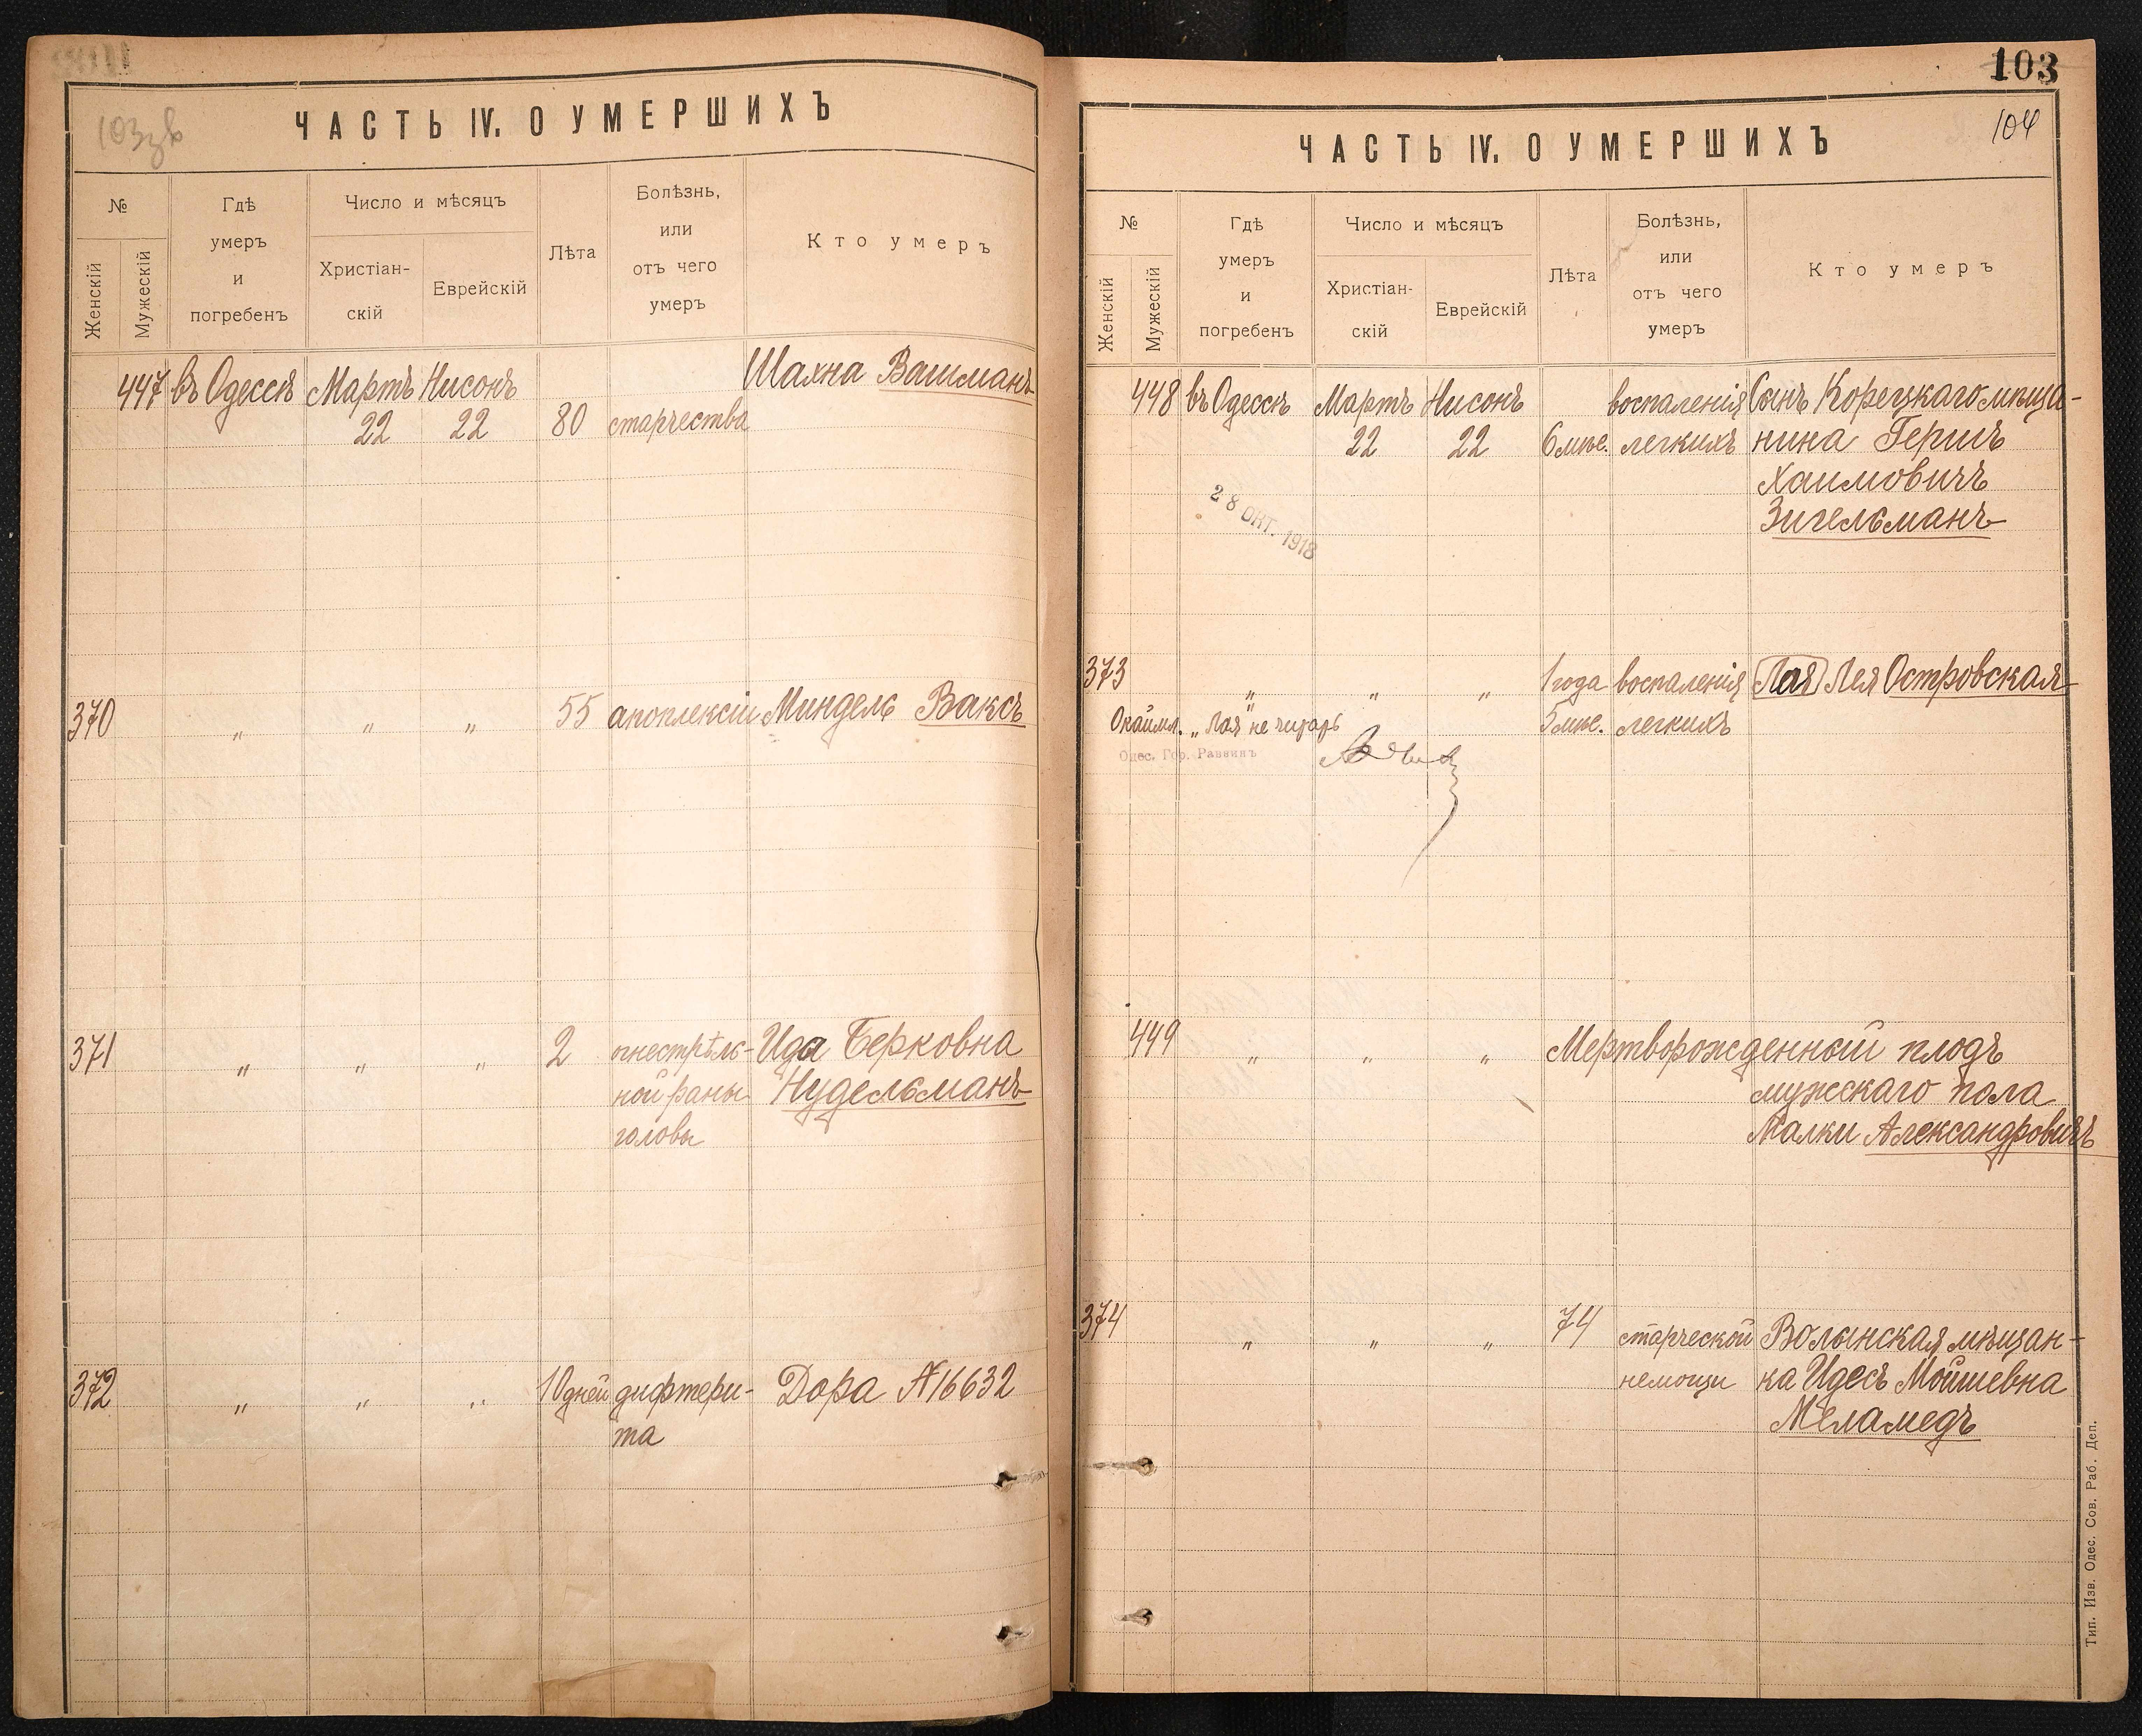 103 зв
ЧАСТЬ IV. О УМЕРШИХЪ
№
Женскій
Мужескій
Гдѣ
умеръ
и
погребенъ
Число и мѣсяцъ
Христіан-
скій
Еврейскій
Лѣта
Болѣзнь,
или
отъ чего
умеръ
Кто умеръ
447 въ Одессѣ Мартъ Нисонъ Шахна Вашманъ
22 22 80 старчества
370 „ „ „ 55 апоплексіи Миндель Ваксъ
371 „ „ „ 2 огнестрѣль- Ида Берковна
ной раны Нудельманъ
головы
372 „ „ „ 10 дней дифтери- Дора №16632
та
103
104
ЧАСТЬ IV. О УМЕРШИХЪ
№
Женскій
Мужескій
Гдѣ
умеръ
и
погребенъ
Число и мѣсяцъ
Христіан-
скій
Еврейскій
Лѣта
Болѣзнь,
или
отъ чего
умеръ
Кто умеръ
448 въ Одессѣ Мартъ Нисонъ воспаленія Сынъ Корецкаго мѣща-
22 22 6 мѣс. легкихъ нина Гершъ
Хаимовичъ
Зигельманъ
28 ОКТ. 1918
373 „ „ „ 1 года воспаленія Лая Лея Островская
Окаймл. „Лая" не читать 5 мѣс. легкихъ
Одес. Гор. Раввинъ
449 „ „ „ Мертворожденный плодъ
мужскаго пола
Малки Александровичъ
374 „ „ „ 74 старческой Волынская мѣщан-
немощи ка Идесъ Мойшевна
Меламедъ
Тип. Изв. Одес. Сов. Раб. Деп.